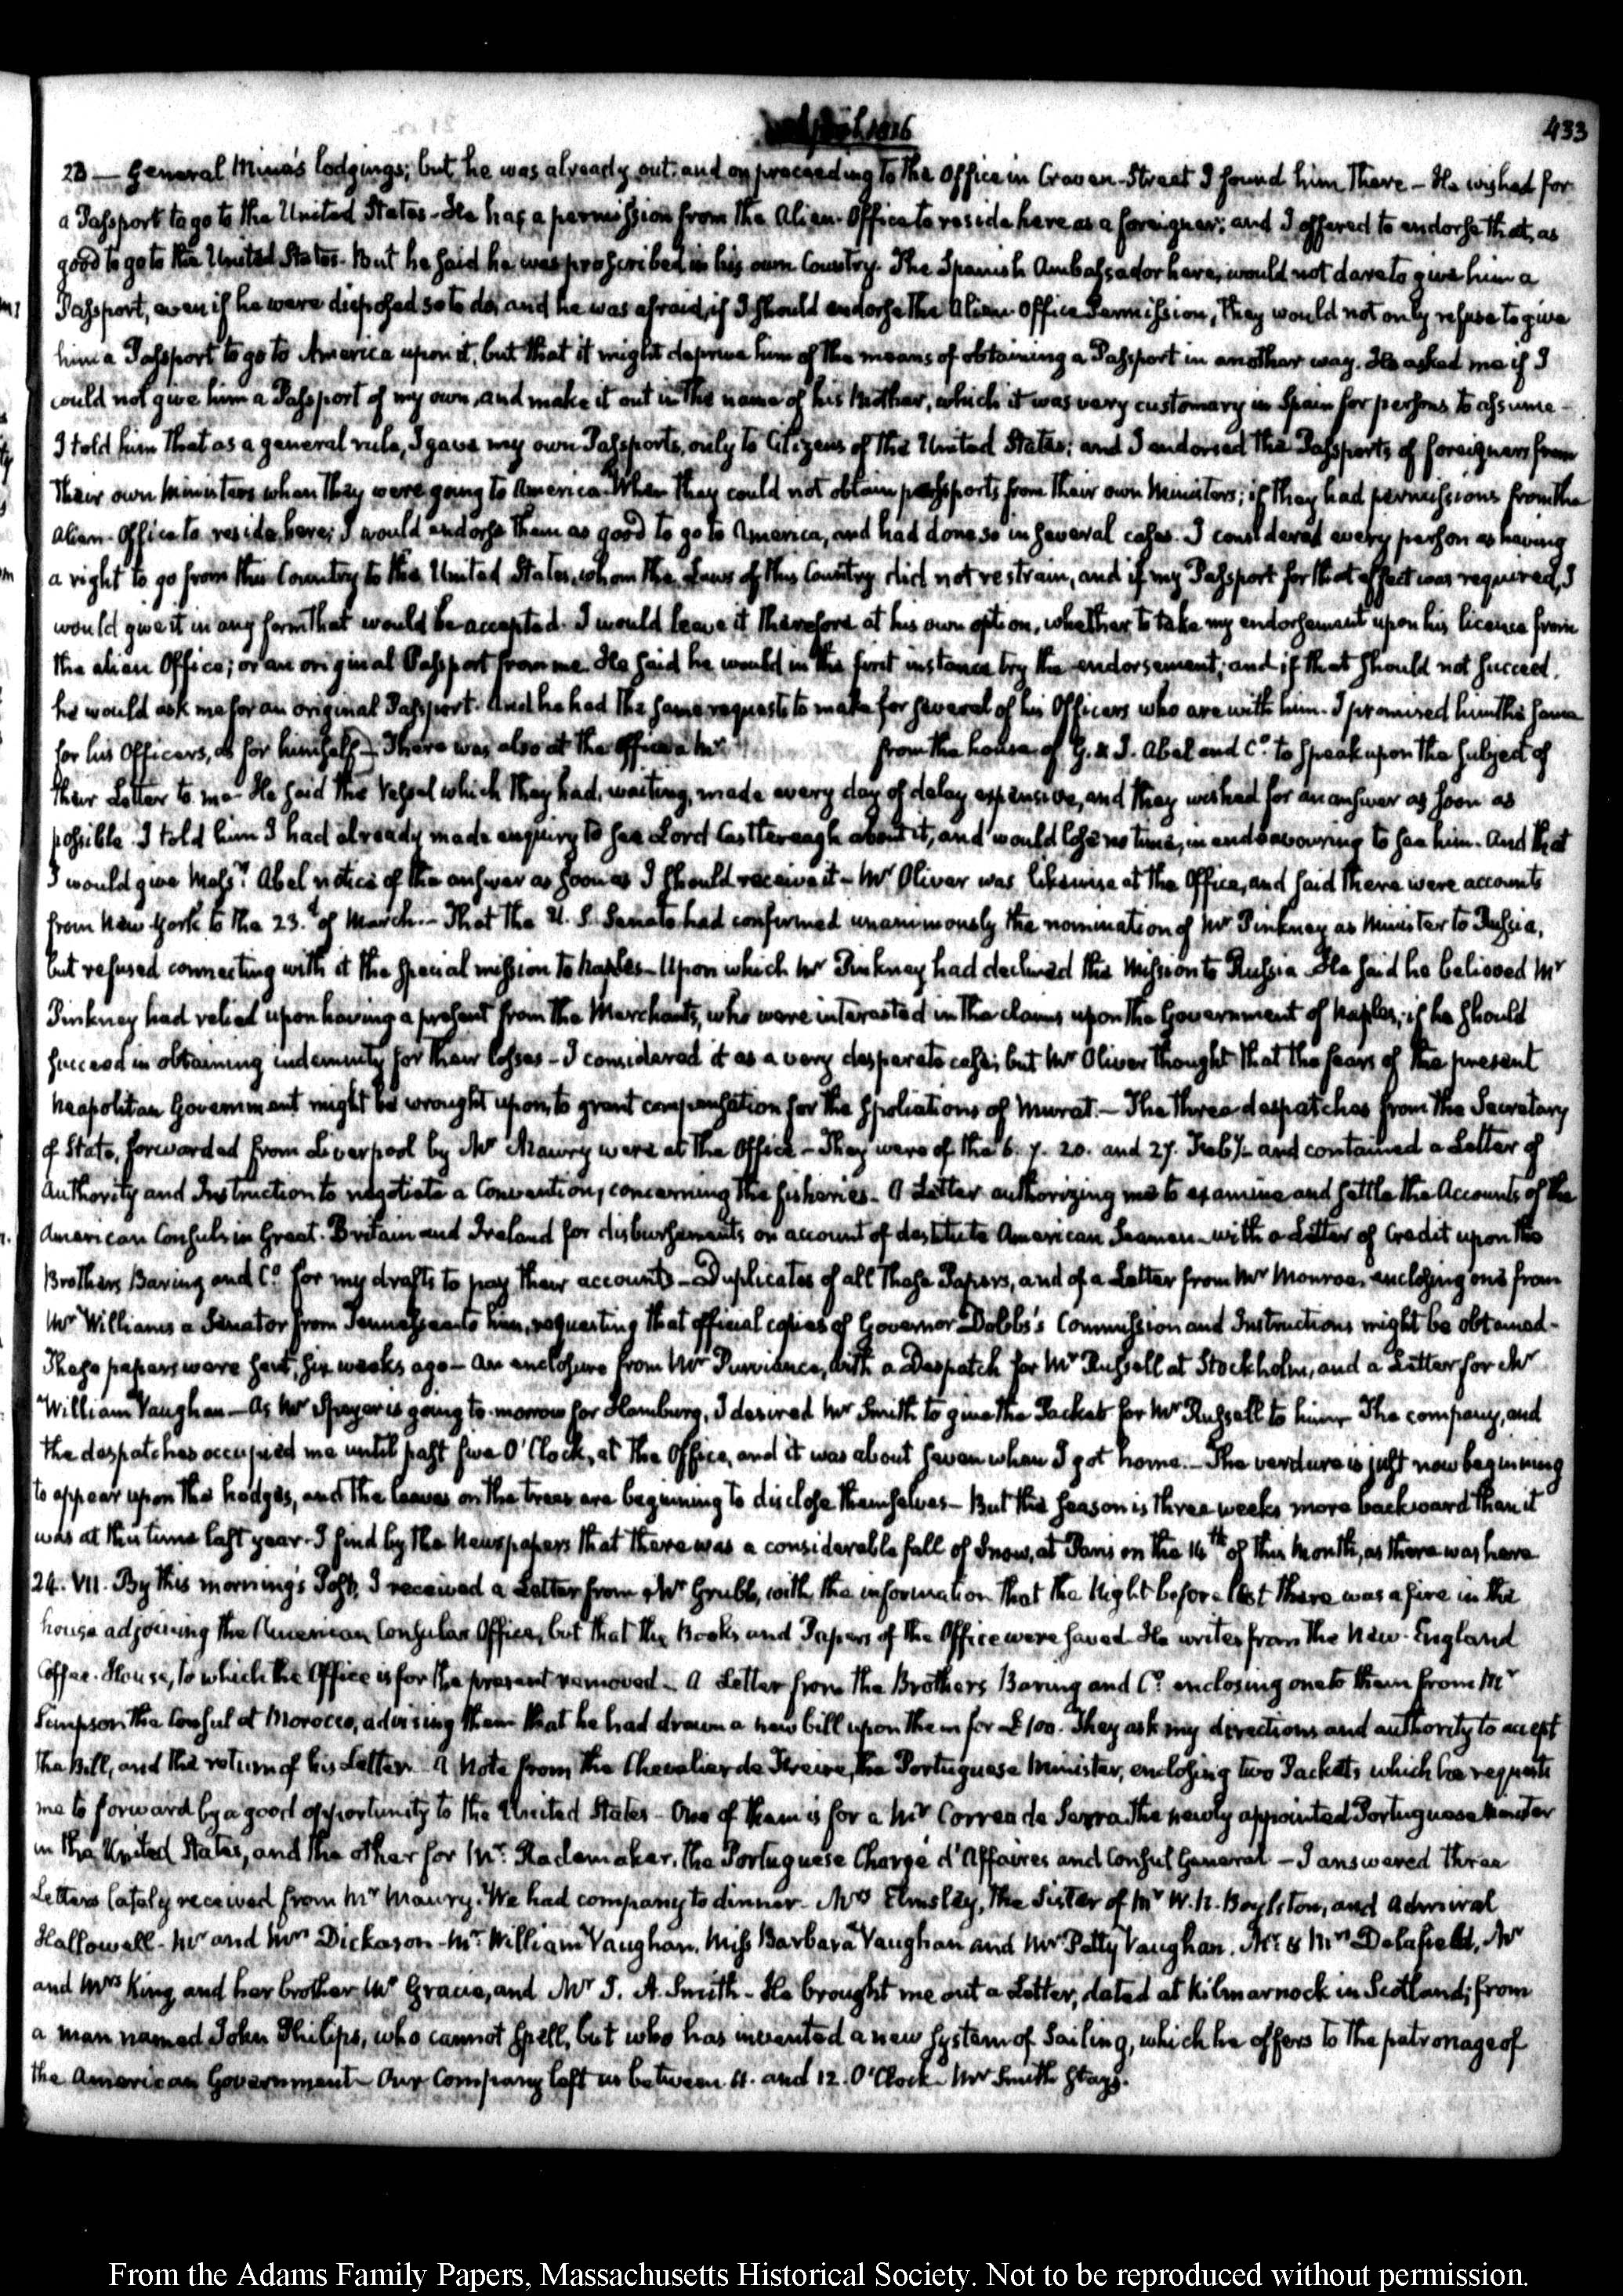 April 1816
433
23 — General Mina's lodgings; but he was already out: and on proceeding to the Office in Craven-Street I found him there — He wished for
a Passport to go to the United States — He has a permission from the Alien-Office to reside here as a foreigner; and I offered to endorse that, as
good to go to the United States. But he said he was proscribed in his own Country. The Spanish Ambassador here, would not dare to give him a
Passport, even if he were disposed so to do, and he was afraid, if I should endorse the Alien Office Permission, they would not only refuse to give
him a Passport to go to America upon it, but that it might deprive him of the means of obtaining a Passport in another way. He asked me if I
could not give him a Passport of my own, and make it out in the name of his Mother, which it was very customary in Spain for persons to assume —
I told him that as a general rule, I gave my own Passports, only to Citizens of the United States: and I endorsed the Passports of foreigners from
their own Ministers when they were going to America. When they could not obtain passports from their own Ministers; if they had permissions from the
Alien-Office to reside here; I would endorse them as good to go to America, and had done so in several cases. I considered every person as having
a right to go from this Country to the United States, whom the Laws of this Country did not restrain, and if my Passport for that effect was required, I
would give it in any form that would be accepted. I would leave it therefore at his own option, whether to take my endorsement upon his licence from
the alien Office; or an original Passport from me. He said he would in the first instance try the endorsement; and if that should not succeed,
he would ask me for an original Passport. And he had the same requests to make for several of his Officers who are with him. I promised him the same
for his Officers, as for himself — There was also at the Office a Mr from the house of G. & J. Abel and Co. to speak upon the subject of
their Letter to me — He said the Vessel which they had, waiting, made every day of delay expensive, and they wished for an answer as soon as
possible. I told him I had already made enquiry to see Lord Castlereagh about it, and would lose no time, in endeavouring to see him. And that
I would give Messrs Abel notice of the answer as soon as I should receive it — Mr Oliver was likewise at the Office, and said there were accounts
from New York to the 23.d of March. — That the U. S. Senate had confirmed unanimously the nomination of Mr Pinkney as Minister to Russia,
but refused connecting with it the special mission to Naples — Upon which Mr Pinkney had declined the Mission to Russia. He said he believed Mr
Pinkney had relied upon having a present from the Merchants, who were interested in the claims upon the Government of Naples, if he should
succeed in obtaining indemnity for their losses — I considered it as a very desperate case; but Mr Oliver thought that the fears of the present
Neapolitan Government might be wrought upon, to grant compensation for the spoliations of Murat. — The three despatches from the Secretary
of State, forwarded from Liverpool by Mr Maury were at the Office — They were of the 6. 7. 20. and 27. Feby. and contained a Letter of
authority and Instruction to negotiate a Convention, concerning the fisheries — A Letter authorizing me to examine and settle the Accounts of the
American Consuls in Great-Britain and Ireland for disbursements on account of destitute American Seamen — with a Letter of Credit upon the
Brothers Baring and Co. for my drafts to pay their accounts — Duplicates of all these Papers, and of a Letter from Mr Monroe, enclosing one from
Mr Williams a Senator from Tennessee to him, requesting that official copies of Governor Dobbs's Commission and Instructions might be obtained —
These papers were sent, six weeks ago — An enclosure from Mr Purviance, with a Despatch for Mr Russell at Stockholm, and a Letter for Mr
William Vaughan — As Mr Speyer is going to-morrow for Hamburg, I desired Mr Smith to give the Packet for Mr Russell to him — The company, and
the despatches occupied me until past five O'Clock, at the Office, and it was about seven when I got home. — The verdure is just now beginning
to appear upon the hedges, and the leaves on the trees are beginning to disclose themselves — But the season is three weeks more backward than it
was at this time last year. I find by the Newspapers that there was a considerable fall of Snow, at Paris on the 14th of this Month, as there was here.
24. VII. By this morning's Post, I received a Letter from Mr Grubb, with the information that the Night before last there was a fire in the
house adjoining the American Consular Office, but that the Books and Papers of the Office were saved. He writes from the New-England
Coffee-House, to which the Office is for the present removed — A Letter from the Brothers Baring and Co. enclosing one to them from Mr
Simpson the Consul at Morocco, advising them that he had drawn a new bill upon them for £100. They ask my directions and authority to accept
the Bill, and the return of his Letter. A Note from the Chevalier de Freire, the Portuguese Minister, enclosing two Packets which he requests
me to forward by a good opportunity to the United States — One of them is for a Mr Correa de Serra the newly appointed Portuguese Minister
in the United States, and the other for Mr. Rademaker, the Portuguese Chargé d'Affaires and Consul General — I answered three
Letters lately received from Mr Maury. We had company to dinner — Mrs Elmsley, the Sister of Mr W. N. Boylston, and Admiral
Hallowell — Mr and Mrs Dickason — Mr. William Vaughan, Miss Barbara Vaughan and Mr Petty Vaughan. Mr & Mrs Delafield, Mr
and Mrs King and her brother Mr Gracie, and Mr J. A. Smith — He brought me out a Letter, dated at Kilmarnock in Scotland; from
a man named John Philips, who cannot spell, but who has invented a new system of Sailing, which he offers to the patronage of
the American Government — Our Company left us between 11. and 12. O'Clock — Mr Smith stays.
From the Adams Family Papers, Massachusetts Historical Society. Not to be reproduced without permission.